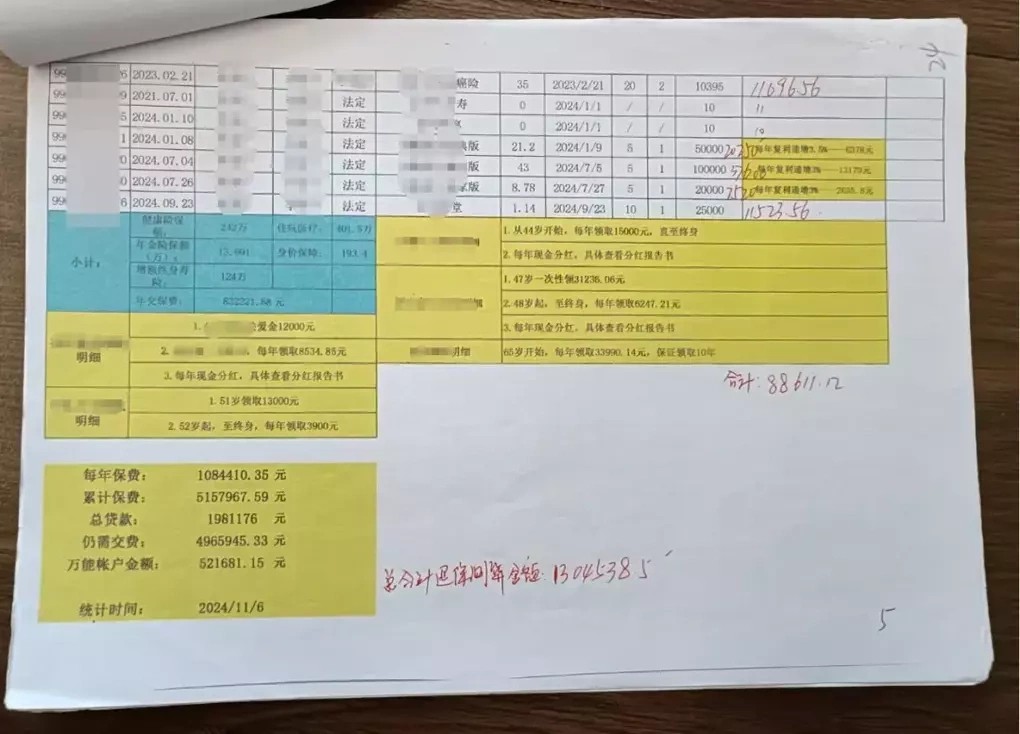 99 6 2023.02.21 癌险 35 2023/2/21 20 2 10395 1169656
9 2021.07.01 法定 寿 0 2024/1/1 / / 10 11
99 5 2024.01.10 法定 0 2024/1/1 / / 10 10
99 1 2024.01.08 法定 版 21.2 2024/1/9 5 1 50000 每年复利递增3.5%
99 0 2024.07.04 法定 版 43 2024/7/5 5 1 100000 每年复利递增3% 13179元
99 0 2024.07.26 法定 版 8.78 2024/7/27 5 1 20000 2520 每年复利递增3%
99 2024.09.23 法定 堂 1.14 2024/9/23 10 1 25000 11523.56
小计：
健康险保额： 242万 住院医疗： 401.5万
年金险保额（万）： 身价保障： 193.4
增额终身寿险： 124万
年化保费： 832221.88 元
1.从44岁开始，每年领取15000元，直至终身
2.每年现金分红，具体查看分红报告书
1.47岁一次性领31236.06元
2.48岁起，至终身，每年领取6247.21元
3.每年现金分红，具体查看分红报告书
明细 65岁开始，每年领取33990.14元，保证领取10年
明细
1. 爱金12000元
2. ，每年领取8534.85元
3.每年现金分红，具体查看分红报告书
明细
1.51岁领取13000元
2.52岁起，至终身，每年领取3900元
合计:88611.12
每年保费： 1084410.35 元
累计保费： 5157967.59 元
总贷款： 1981176 元
仍需交费： 4965945.33 元
万能帐户金额： 521681.15 元
统计时间： 2024/11/6
总合计退保 金额: 13045385
5